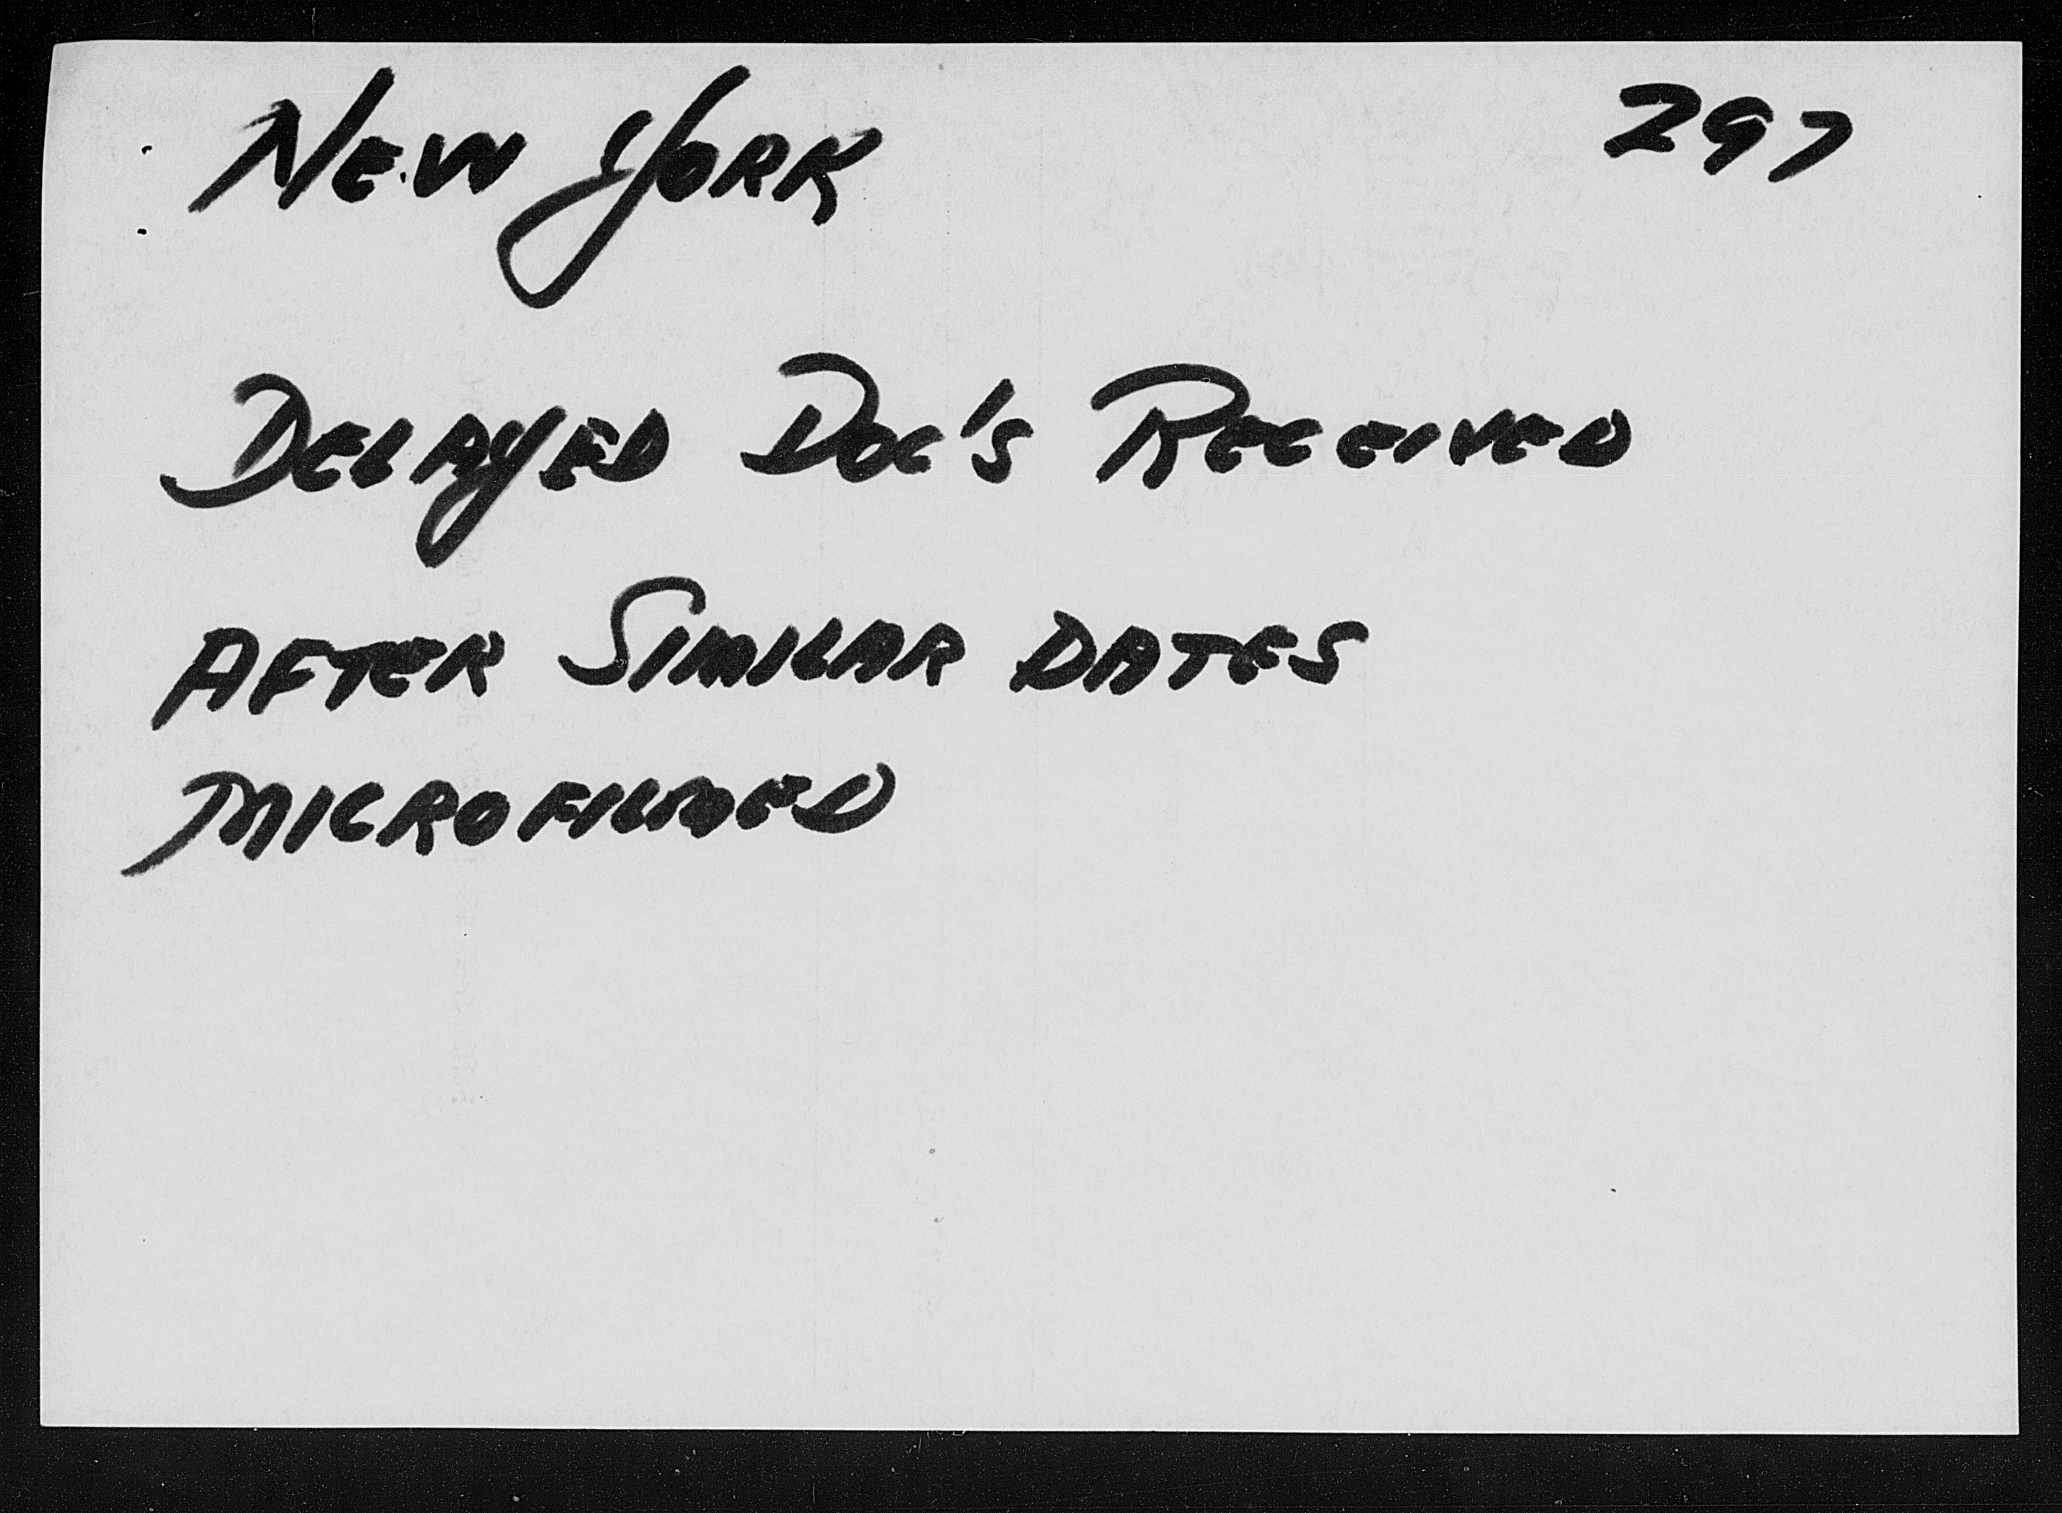 NEW YORK 297
DELAYED DOC'S RECEIVED
AFTER SIMILAR DATES
MICROFILMED